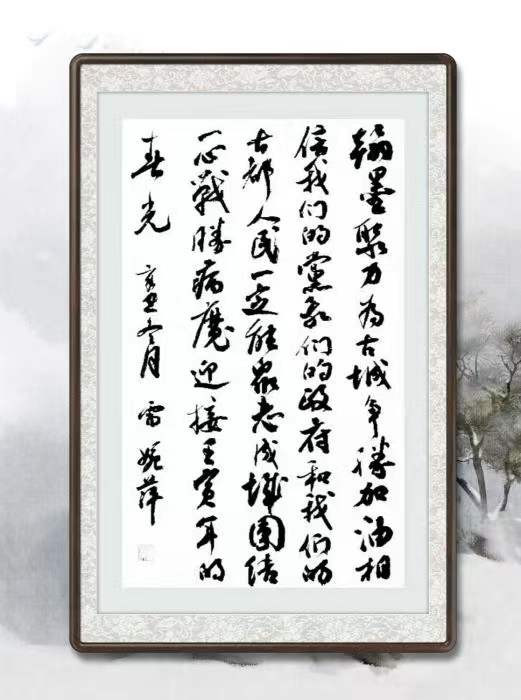 翰墨聚力为古城争勝加油相
信我们的黨我们的政府和我们的
古都人民一定能众志成城團结
一心戰勝病魔迎接壬寅年的
春光
辛丑冬月 雷婉萍